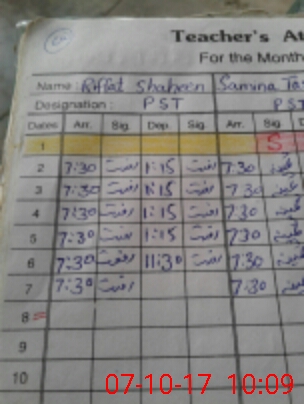 Teacher's At
For the Month
Name : Riffat Shaheen Samina Ta
Designation : PST PS
Dates Arr. Sig. Dep. Sig. Arr. Sig. D
1 S
2 7:30 رفعت 1:15 رفعت 7:30
3 7:30 رفعت 1:15 رفعت 7:30
4 7:30 رفعت 1:15 رفعت 7:30
5 7:30 رفعت 1:15 رفعت 7:30
6 7:30 رفعت 11:30 رفعت 7:30
7 7:30 رفعت 7:30
8 =
9
10
07-10-17 10:09